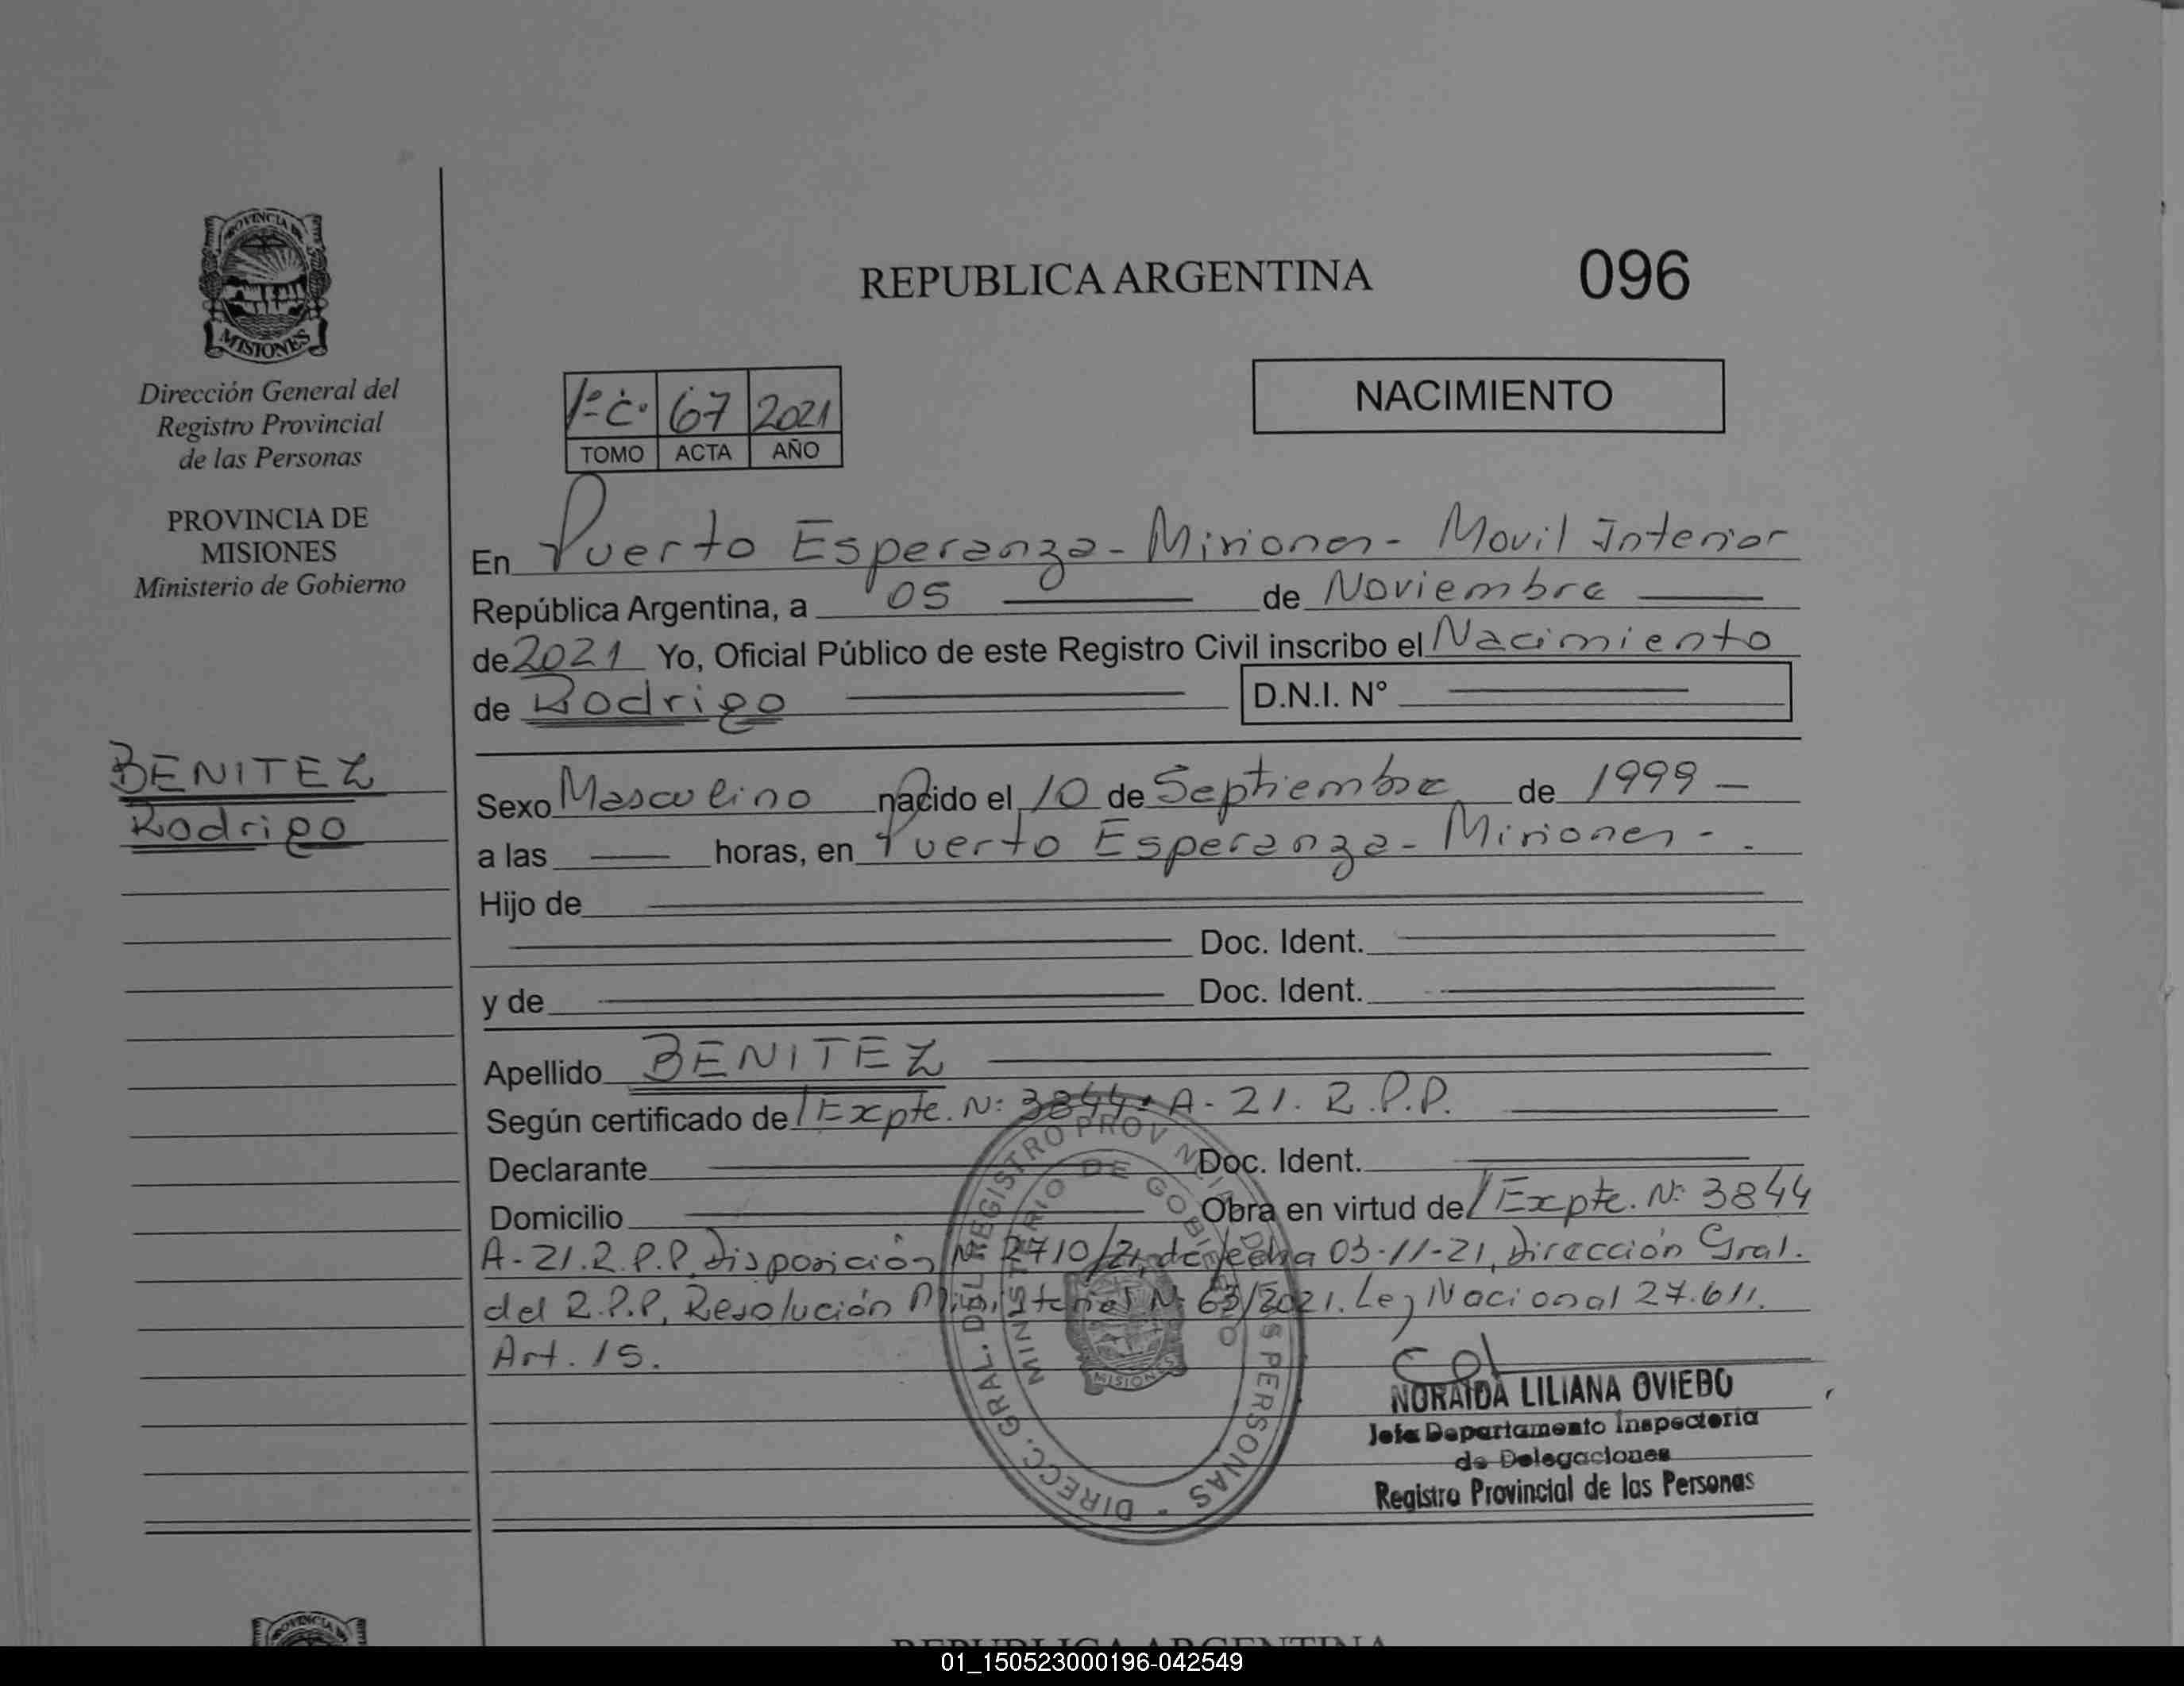 PROVINCIA DE
MISIONES
Dirección General del
Registro Provincial
de las Personas
PROVINCIA DE
MISIONES
Ministerio de Gobierno
BENITEZ
Rodrigo
REPUBLICA ARGENTINA
096
1º C. 67 2021
TOMO ACTA AÑO
NACIMIENTO
En Puerto Esperanza - Misiones - Movil Interior
República Argentina, a 05 de Noviembre
de 2021 Yo, Oficial Público de este Registro Civil inscribo el Nacimiento
de Rodrigo D.N.I. N°
Sexo Masculino nacido el 10 de Septiembre de 1999 -
a las horas, en Puerto Esperanza - Misiones -
Hijo de
Doc. Ident.
y de Doc. Ident.
Apellido BENITEZ
Según certificado de Expte. Nº 3844 - A - 21. R.P.P.
Declarante Doc. Ident.
Domicilio Obra en virtud de Expte. Nº 3844
A-21.R.P.P, Disposición Nº 2710/21, de fecha 03-11-21, Dirección Gral.
del R.P.P, Resolución Ministerial Nº 63/2021. Ley Nacional 27.611.
Art. 15.
DIRECC. GRAL. DEL REGISTRO PROVINCIAL DE LAS PERSONAS -
MINISTERIO DE GOBIERNO
MISIONES
NORAIDA LILIANA OVIEDO
Jefa Departamento Inspectoría
de Delegaciones
Registro Provincial de las Personas
REPUBLICA ARGENTINA
01_150523000196-042549